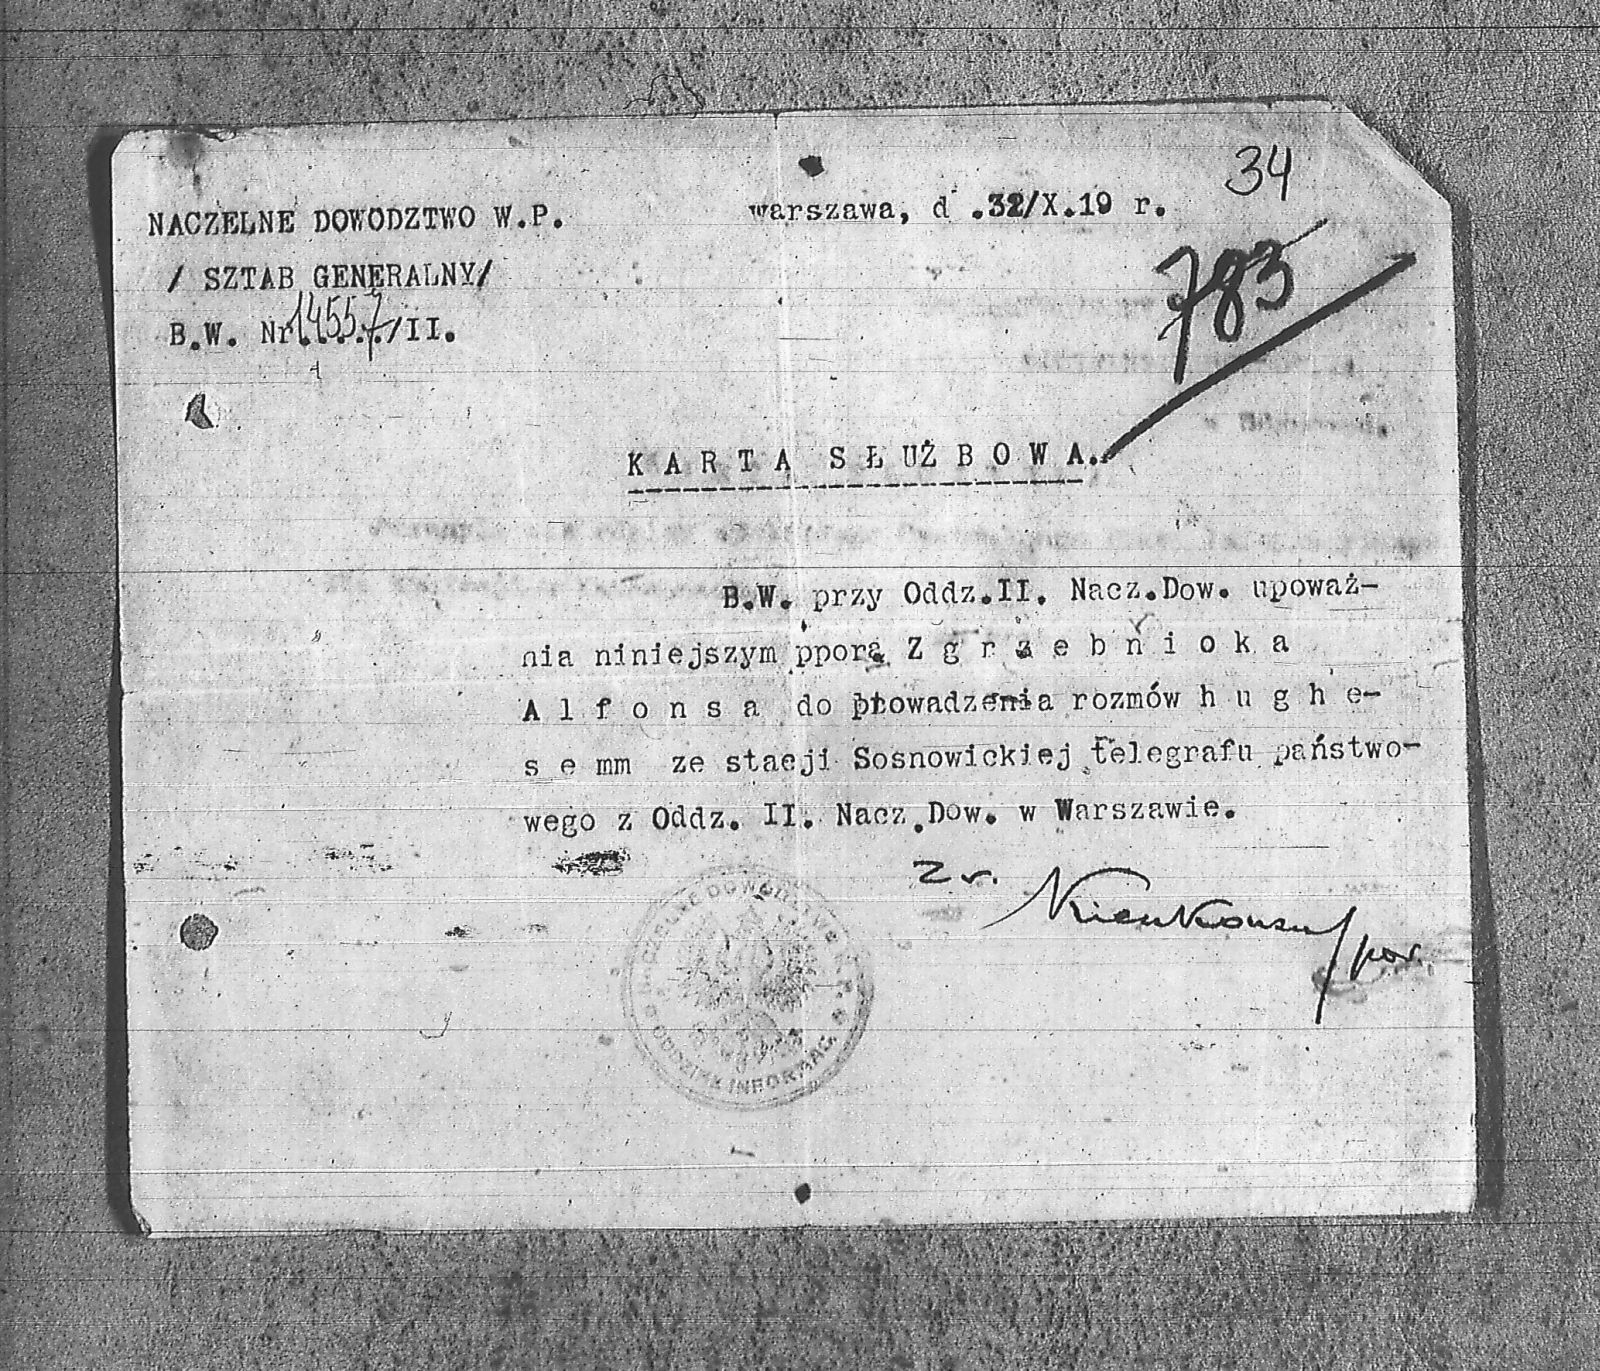 34
NACZELNE DOWODZTWO W.P.
warszawa, d .32/X.19 r.
/ SZTAB GENERALNY/
783
B.W. Nr.14557/II.
KARTA SŁUŻBOWA.
B.W. przy Oddz.II. Nacz.Dow. upoważ-
nia niniejszym ppora Zgrzebnioka
Alfonsa do prowadzenia rozmów hughe-
semm ze stacji Sosnowickiej telegrafu państwo-
wego z Oddz. II. Nacz.Dow. w Warszawie.
Z r.
por.
NACZELNE DOWÓDZTWO W.P.
ODDZIAŁ INFORMAC.